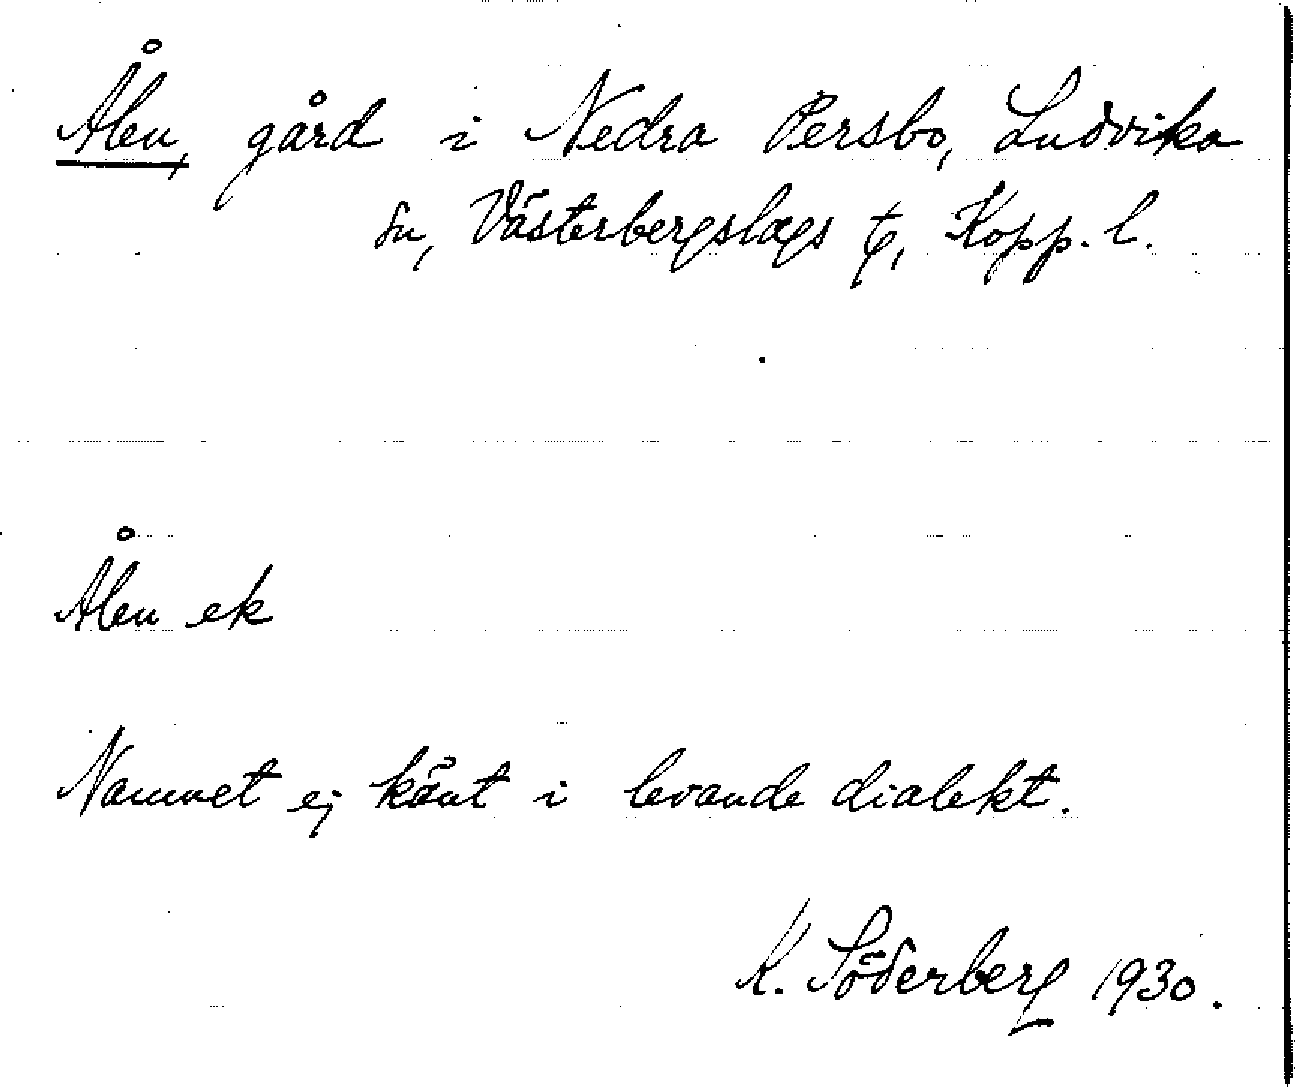 Ålen, gård i Nedra Persbo, Ludvika
sn, Västerbergslags tg, Kopp. l.
Ålen ek
Namnet ej känt i levande dialekt.
K. Söderberg 1930.